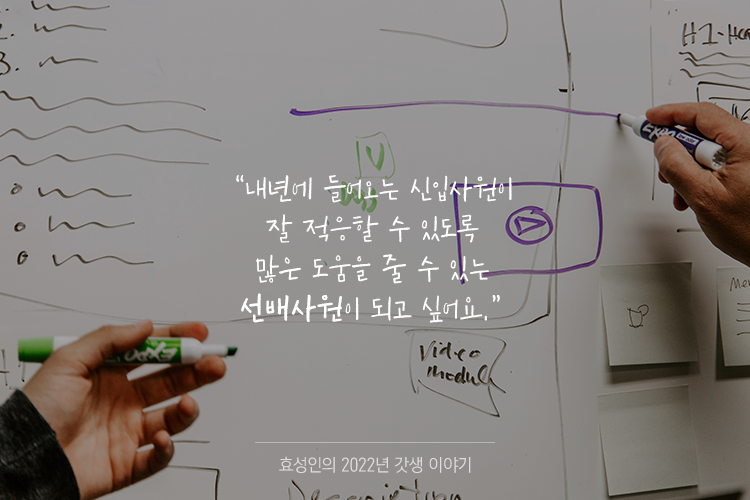 2.
3.
H1-
EXPO
V
“내년에 들어오는 신입사원이
잘 적응할 수 있도록
많은 도움을 줄 수 있는
선배사원이 되고 싶어요.”
EXPO
Video
module
효성인의 2022년 갓생 이야기
Description